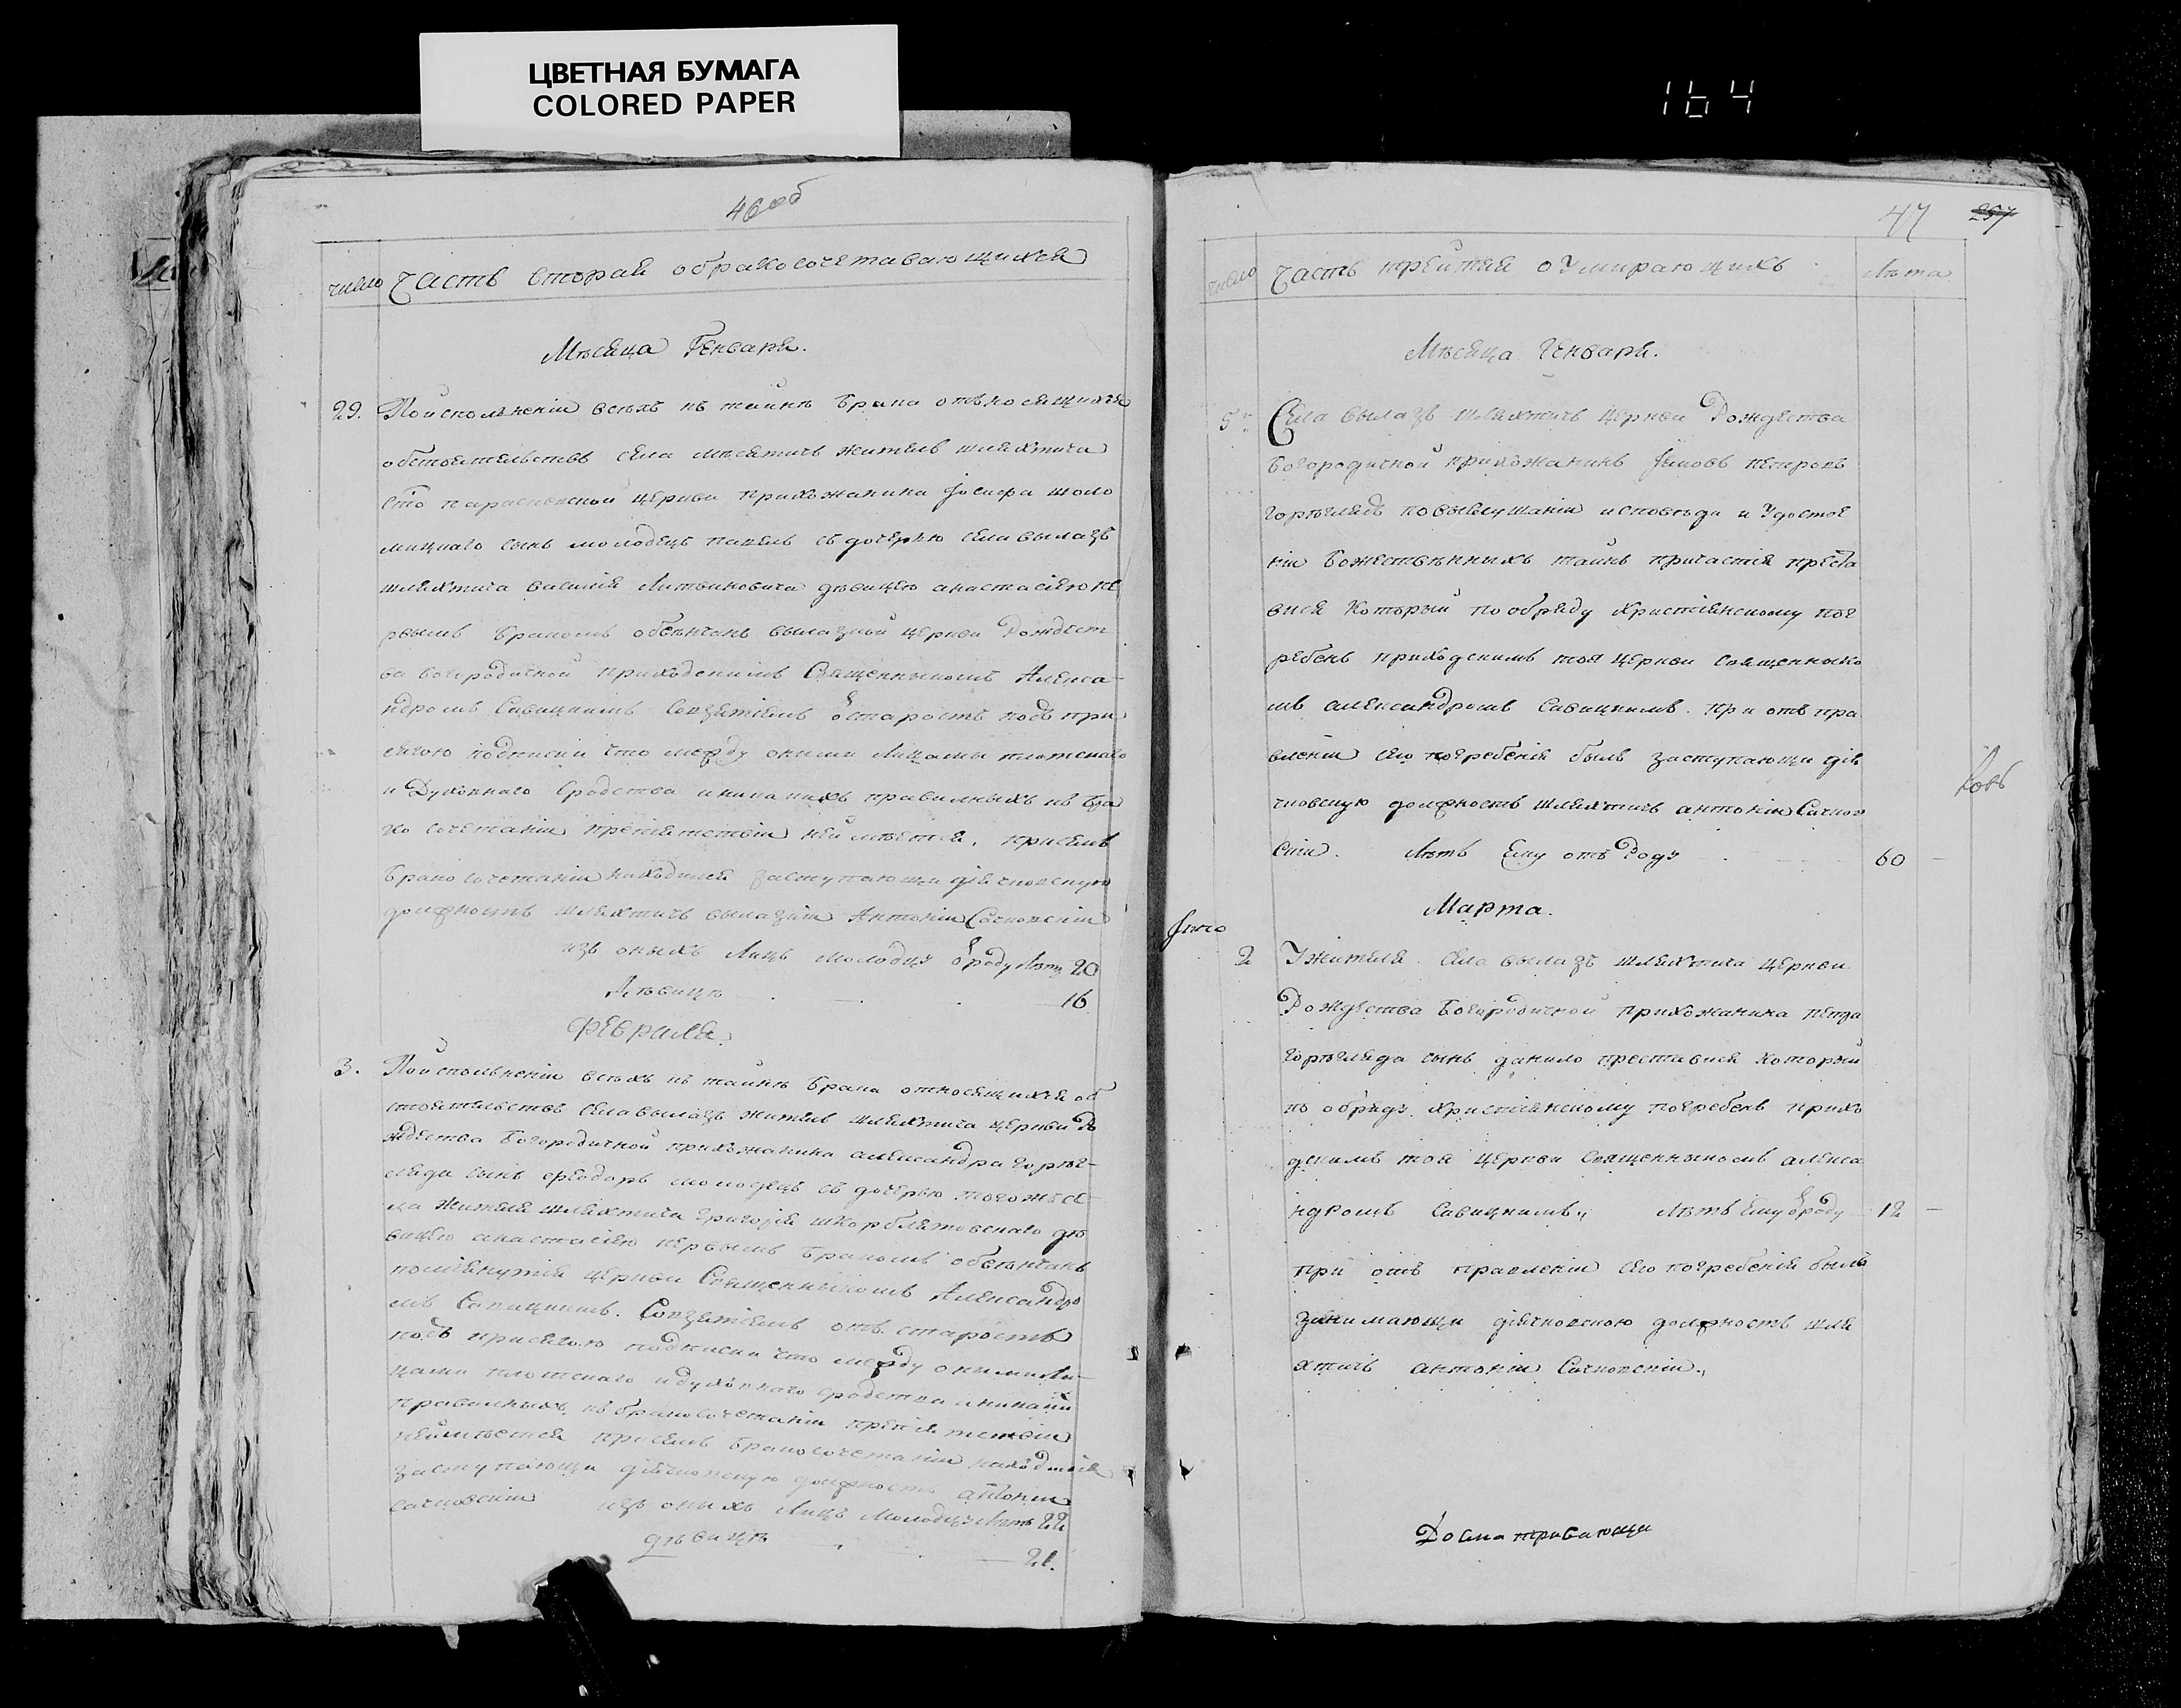 ЦВЕТНАЯ БУМАГА
COLORED PAPER
164
46 об
число Часть вторая обракосочетавающихся
Месяца Генваря.
29. Поисполненіи всехъ къ тайнѣ брака относящихся
обстоятельствъ села мѣсятичъ житель шляхтича
сто параскевской церкви прихожанина Іосифа шоло
мицкаго сынъ молодецъ павелъ съ дочерью села вылазъ
шляхтича василія Литвиновича девицею анастасіею пе
рвымъ бракомъ обвѣнчанъ вылазкой церкви Рождест
ва богородичной приходскимъ Священникомъ Алекса-
ндромъ Савицкимъ Совзятіемъ старостъ подъ при
сягою подписки что между оними Лицами плотскаго
и Духовнаго Сродства иникакихъ правилныхъ къ бра
ко сочетанію препятствіи неимѣется, присемъ
бракосочетаніи находился заступающи дячковскую
должность шляхтичъ вылазкій Антоній Сачковскій
изъ оныхъ Лицъ молодцу роду лѣтъ 20
Девицѣ 16
Февраля
3. Поисполненіи всехъ къ тайнѣ брака относящихся об
стоятельствъ села вылазъ житель шляхтича церкви Ро
ждества богородичной прихожанина александра горег-
ляда сынъ федоръ молодецъ съ дочерью тогожъ се-
ла жителя шляхтича григорія шкорблятовскаго де
вицею анастасіею первымъ бракомъ обвѣнчанъ
помянутія церкви Священникомъ Александро
мъ Савицкимъ. Совзятіемъ отъ старостъ
подъ присягою подписки что между оними Ли-
цами плотскаго идуховнаго сродства иникаких
правилныхъ къ бракосочетанію препятствіи
неимѣется присемъ бракосочетаніи находился
заступающи дячковскую должность антоніи
сачковскіи изъ оныхъ Лицъ молодцу лѣтъ 22
девицѣ 21.
47 257
число Часть трейтяя о Умирающихъ Лѣта
Месяца Генваря.
5 Села вылазъ шляхтичъ церкви Рождества
богородичной прихожанинъ Яковъ петровъ
горегледъ повыслушаніи исповѣди и Удостое
ніи божественныхъ тайнъ причастія преста
вися который по обряду христіянскому пог
ребенъ приходскимъ тоя церкви священнико
мъ александромъ савицкимъ. при отъ пра
вленіи его погребенія былъ заступающи дя
чковскую должность шляхтичъ антоніи Сачков
скіи. Лѣтъ Ему отъ Роду 60
Марта.
2 Ужителя села вылазъ шляхтича церкви
Рождества богородичной прихожанина петра
горегляда сынъ данило преставися который
по обряду христіянскому погребенъ прихо
дскимъ тоя церкви священникомъ алекса
ндромъ савицкимъ, лѣтъ Ему роду 12
при отъ правленіи его погребенія былъ
занимающи дячковскою должность шля
хтичъ антоніи Сачковскіи.,
Досматривающи